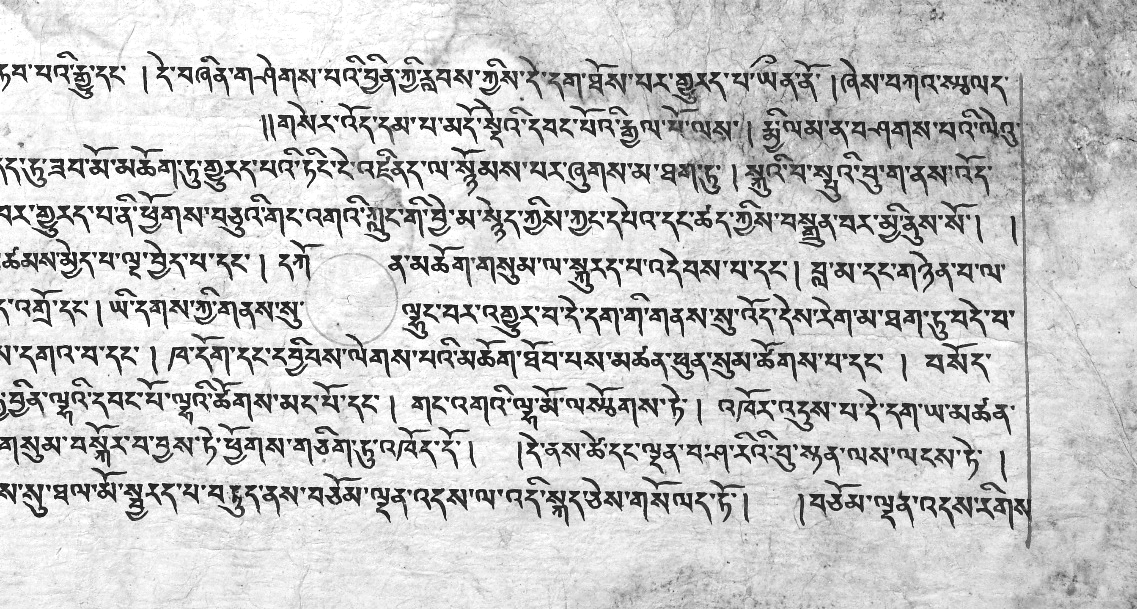 རྟབ་པའི་རྒྱུ་དང༌ ། དེ་བཞིན་གཤེགས་པའི་བྱིན་ཀྱི་རླབས་ཀྱིས་དེ་དག་ཐོས་པར་གྱུརད་པ་ཡིན་ནོ་ །ཞེས་བཀའ་སྩལད་
།།གསེར་འོད་དམ་པ་མདོ་སྡེའི་དབང་པོའི་རྒྱལ་པོ་ལས་ ། རྨི་ལམ་ན་བཤགས་པའི་ལེའུ་
དད་ཏུ་ཟབ་མོ་མཆོག་ཏུ་གྱུརད་པའི་ཏིང་ངེ་འཛིནད་ལ་སྙོམས་པར་ཞུགས་མ་ཐག་ཏུ ། སྐུའི་བ་སྤུའི་བུ་ག་ནས་འོད་
བར་གྱུརད་པ་ནི་ཕྱོགས་བཅུའི་གང་འགའི་ཀླུང་གི་བྱེ་མ་སྙེད་ཀྱིས་ཀྱང་དཔེའ་དང་ཚད་ཀྱིས་བསྒྲུན་བར་མྱི་ནུས་སོ ། །
ཚམས་མྱེད་པ་ལྔ་བྱེད་པ་དང་ ། དཀོན་མཆོག་གསུམ་ལ་སྐུརད་པ་འདེབས་པ་དང ། བླ་མ་དང་གཉེན་བ་ལ་
ད་འགྲོ་དང ། ཡི་དགས་ཀྱི་གནས་སུ་ལྟུང་བར་འགྱུར་བ་དེ་དག་གི་གནས་སུ་འོད་དེས་རེག་མ་ཐག་ཏུ་བདེ་བ་
ས་དགའ་བ་དང ། ཁ་དོག་དང་དབྱིབས་ལེགས་པའི་མཆོག་ཐོབ་པས་མཚན་ཕུན་སུམ་ཚོགས་པ་དང་ ། བསོད་
བྱིན་ལྷའི་དབང་པོ་ལྷའི་ཚོགས་མང་པོ་དང ། གང་འགའི་ལྷ་མོ་ལ་སྩོགས་ཏེ ། འཁོར་འདུས་པ་དེ་དག་ཡ་མཚན་
གསུམ་བསྐོར་བ་བྱས་ཏེ་ཕྱོགས་གཅིག་ཏུ་འཁོད་དོ ། །དེ་ནས་ཚེ་དང་ལྡན་བ་ཤ་རིའི་བུ་སྟན་ལས་ལངས་ཏེ །
ས་སུ་ཐལ་མོ་སྦྱརད་པ་བཏུད་ནས་བཅོམ་ལྡན་འདས་ལ་འདི་སྐད་ཅེས་གསོལད་ཏོ ། །བཅོམ་ལྡན་འདས་རིགས